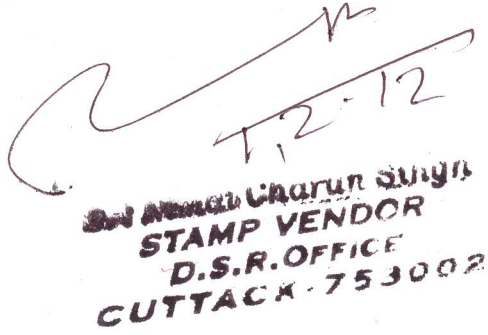 1,2-12
Charun Singh
STAMP VENDOR
D.S.R. OFFICE
CUTTACK-753002